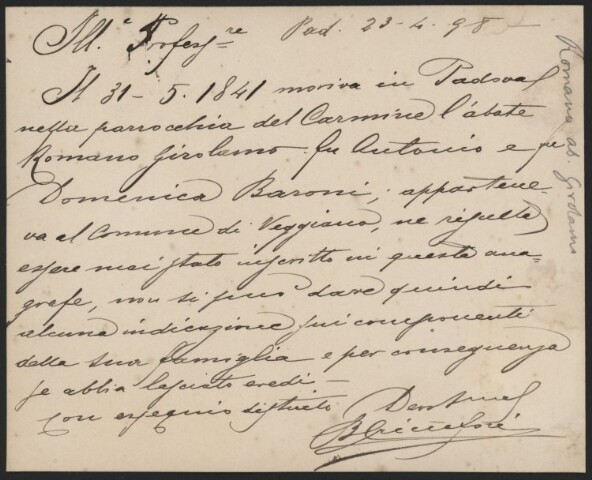 Ill.e Profess.re Pad. 23-4.98-
Il 31-5.1841 moriva in Padova
nella parrocchia del Carmine l'abate
Romano Girolamo fu Antonio e fu
Domenica Baroni; appartene-
va al Comune di Veggiano, ne risulta
essere mai stato inscritto in questa ana-
grafe, non si può dare quindi
alcuna indicazione sui componenti
della sua famiglia e per conseguenza
se abbia lasciato eredi-
Con ossequio distinto
Romano ab. Girolamo